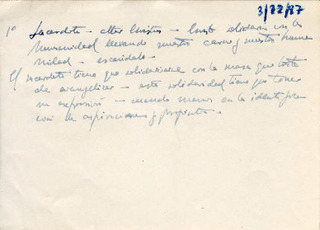 3/22/87
1º Sacerdote - alter Christus - Cristo solidario con la
humanidad llevando nuestra carne y nuestra huma
nidad -
El sacerdote tiene que solidarizarse con la masa que
de evangelizar - esta solidaridad tiene que tener
su expresión - cuando menos en la identificación
con sus aspiraciones y proyectos -